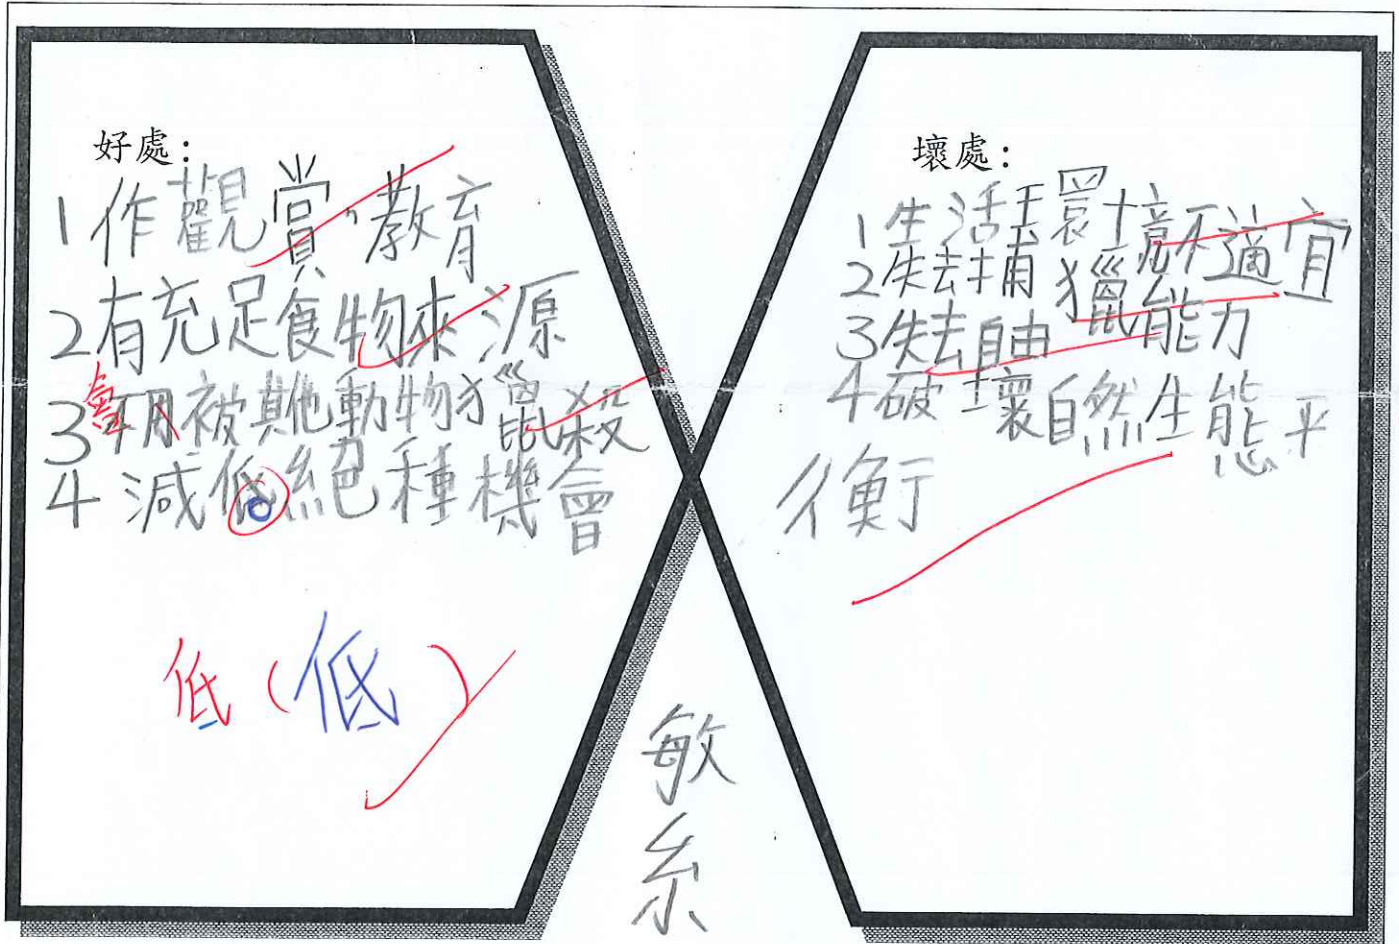 好處：
1 作觀賞,教育
2有充足食物來源
3不用被其他動物獵殺
會
4 減低絕種機會
低(低)
壞處：
1生活環境不適宜
2失去捕獵能力
3失去自由
4破壞自然生態平
衡
敏
糸